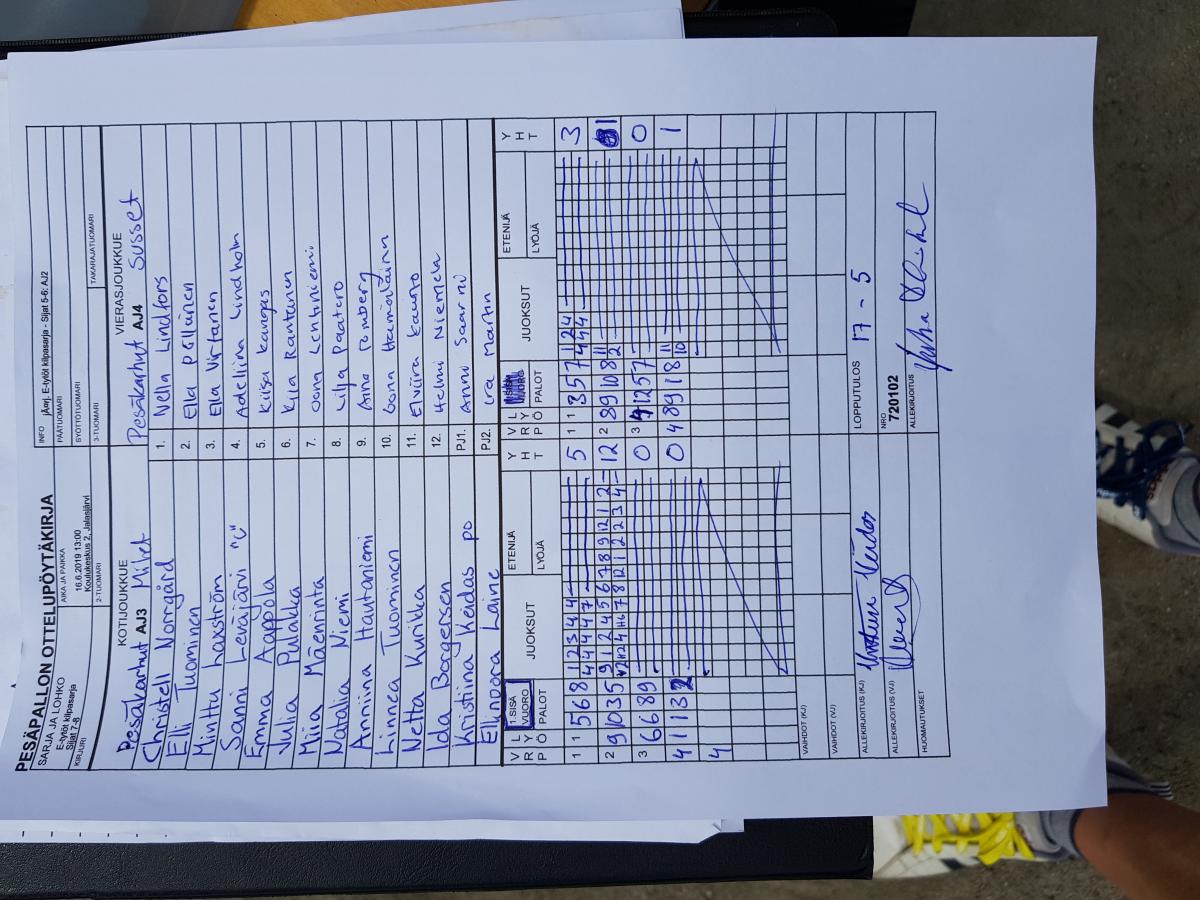 PESÄPALLON OTTELUPÖYTÄKIRJA
SARJA JA LOHKO
E-tytöt kilpasarja
Sijat 7-8
AIKA JA PAIKKA
16.6.2019 13:00
Koulukeskus 2, Jalasjärvi
INFO jÄorj. E-tytöt kilpasarja - Sijat 5-6: AJ2
PÄÄTUOMARI
SYÖTTÖTUOMARI
KIRJURI
2-TUOMARI
3-TUOMARI
TAKARAJATUOMARI
KOTIJOUKKUE
VIERASJOUKKUE
Pesäkarhut AJ3
Pesäkarhut AJ4 Susset
Christell Norrgård 1. Nella Lindfors
Elli Tuominen 2. Ella Pöllänen
Minttu Laxström 3. Ella Virtanen
Sanni Leväjärvi "C" 4. Adeliina Lindholm
Emma Aappola 5. Kiisa Kangas
Julia Pulakka 6. Kyra Rantanen
Miia Mäenrinta 7. Oona Lehtiniemi
Natalia Niemi 8. Lilja Paatero
Anniina Hautaniemi 9. Aino Romberg
Linnea Tuominen 10.
Netta Kurikka 11. Elviira Kaunto
Iida Borgersen 12. Helmi Niemelä
Kristiina Keidas po PJ1. Anni Saarni
Ellinoora Laine PJ2. Ira Martin
VRP LYÖ 1.SISÄ VUORO PALOT JUOKSUT ETENIJÄ LYÖJÄ YHT
VRP LYÖ PALOT JUOKSUT ETENIJÄ LYÖJÄ YHT
1 1 5 6 8 1 2 3 4 4 5 1 1 3 5 7 1 2 4 3
4 4 4 4 7 4 4 4
2 9 10 3 5 9 1 2 4 5 6 7 8 9 12 1 2 12 2 8 9 10 8 11 1
3 6 6 8 9 0 3 12 5 7 0
4 11 1 3 2 0 0 4 8 9 1 8 11 1
10
4
VAIHDOT (KJ)
VAIHDOT (VJ)
ALLEKIRJOITUS (KJ)
LOPPUTULOS 17 - 5
ALLEKIRJOITUS (VJ)
NRO
720102
ALLEKIRJOITUS
HUOMAUTUKSET